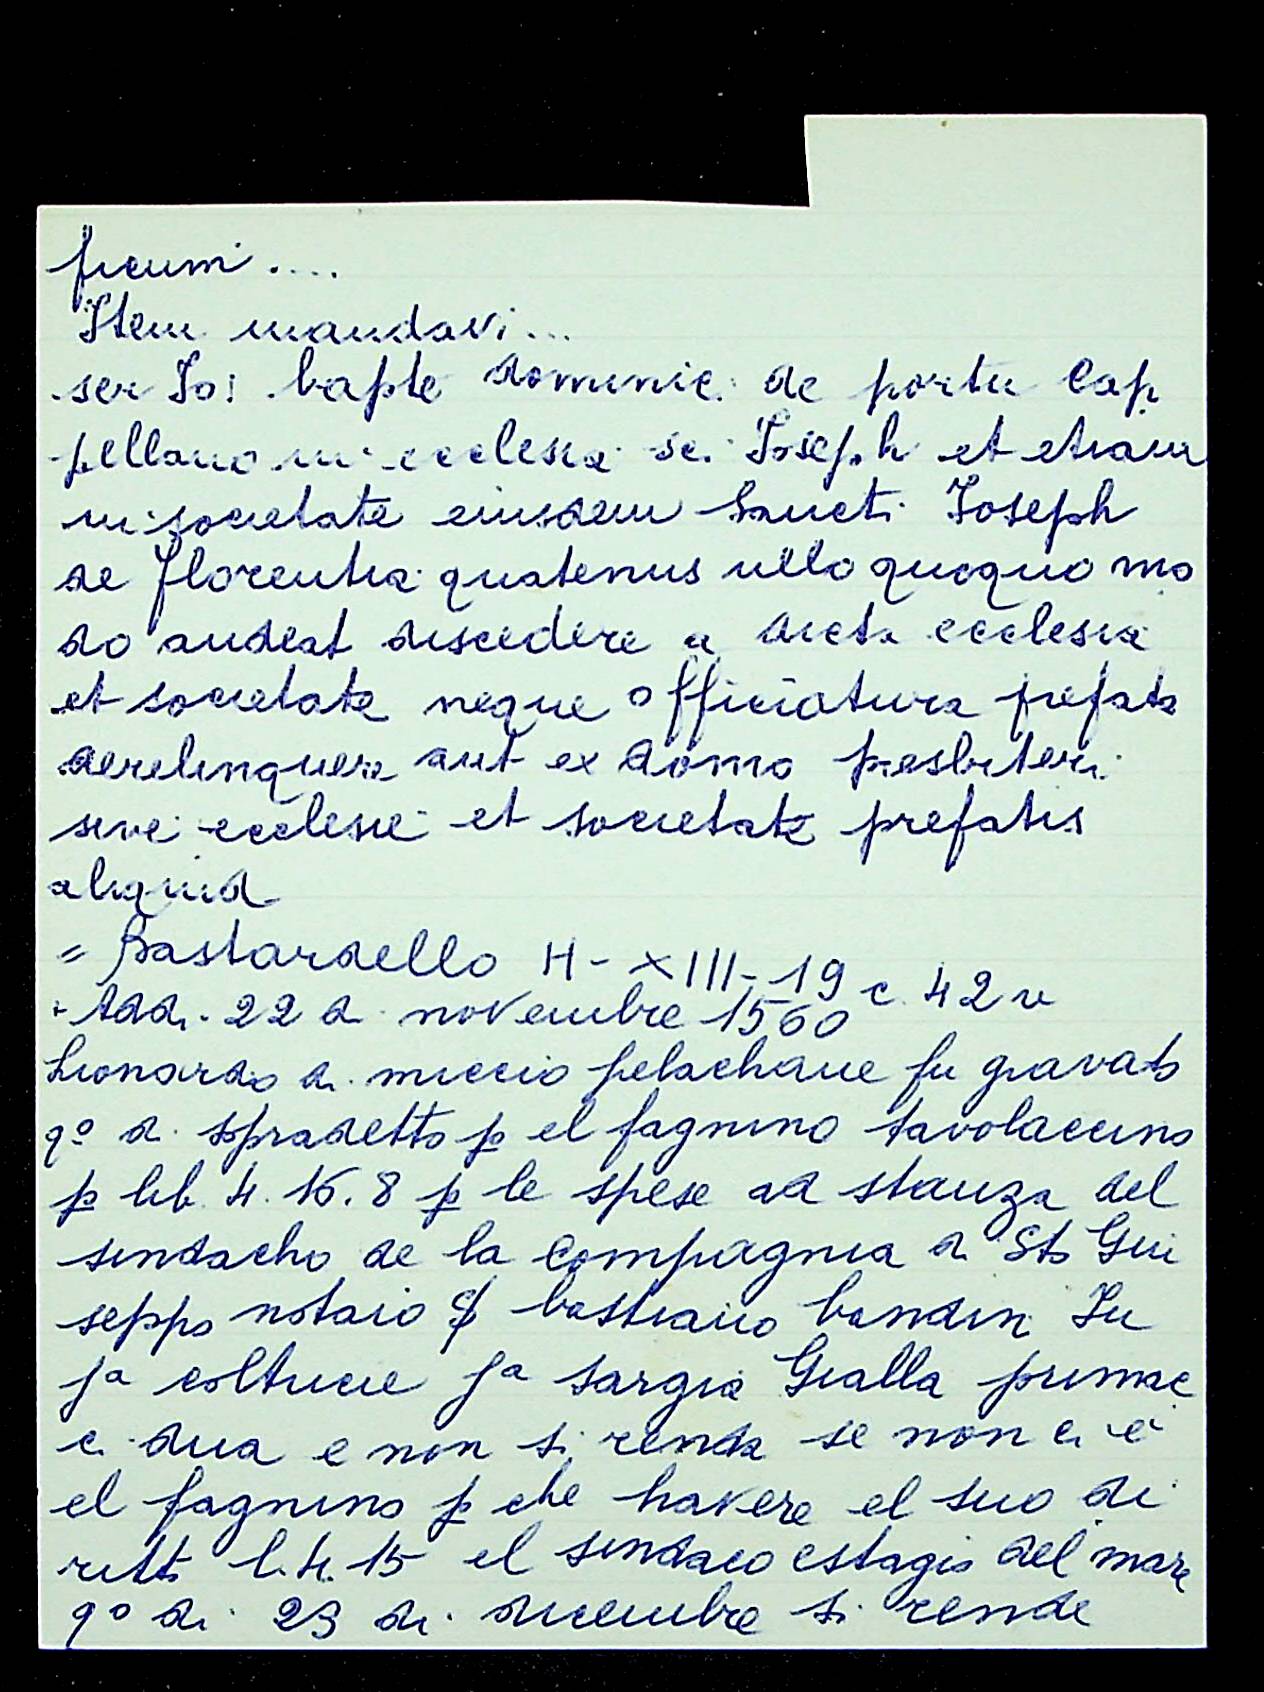 ficum ....
Item mandavi...
ser Jo: bapte dominic: de portu Cap
pellano in ecclesia sci Joseph et etiam
in societate eiusdem Sancti Joseph
de florentia quatenus ullo quoquo mo
do audeat discedere a dicta ecclesia
et societate neque officiatura prefata
derelinquere aut ex domo presbiteri
sive ecclesie et societate prefatis
aliquid
= Bastardello H-XIII-19 c 42 v
+ Addi. 22 di novembre 1560
Lionardo di miccio pelachane fu gravato
q° di sopradetto p el fagnino tavolaccino
p lib. 4. 16. 8 p le spese ad stanza del
sindacho de la compagnia di Sto Giu
seppo notaio bastiano bandin In
ja coltricie ja sargia Gialla primac
ci dua e non si renda se non ci è
el fagnino p che havere el suo di
ritto l. 4. 15 el sindaco estagio del mare
q° di 23 di dicembre si rende